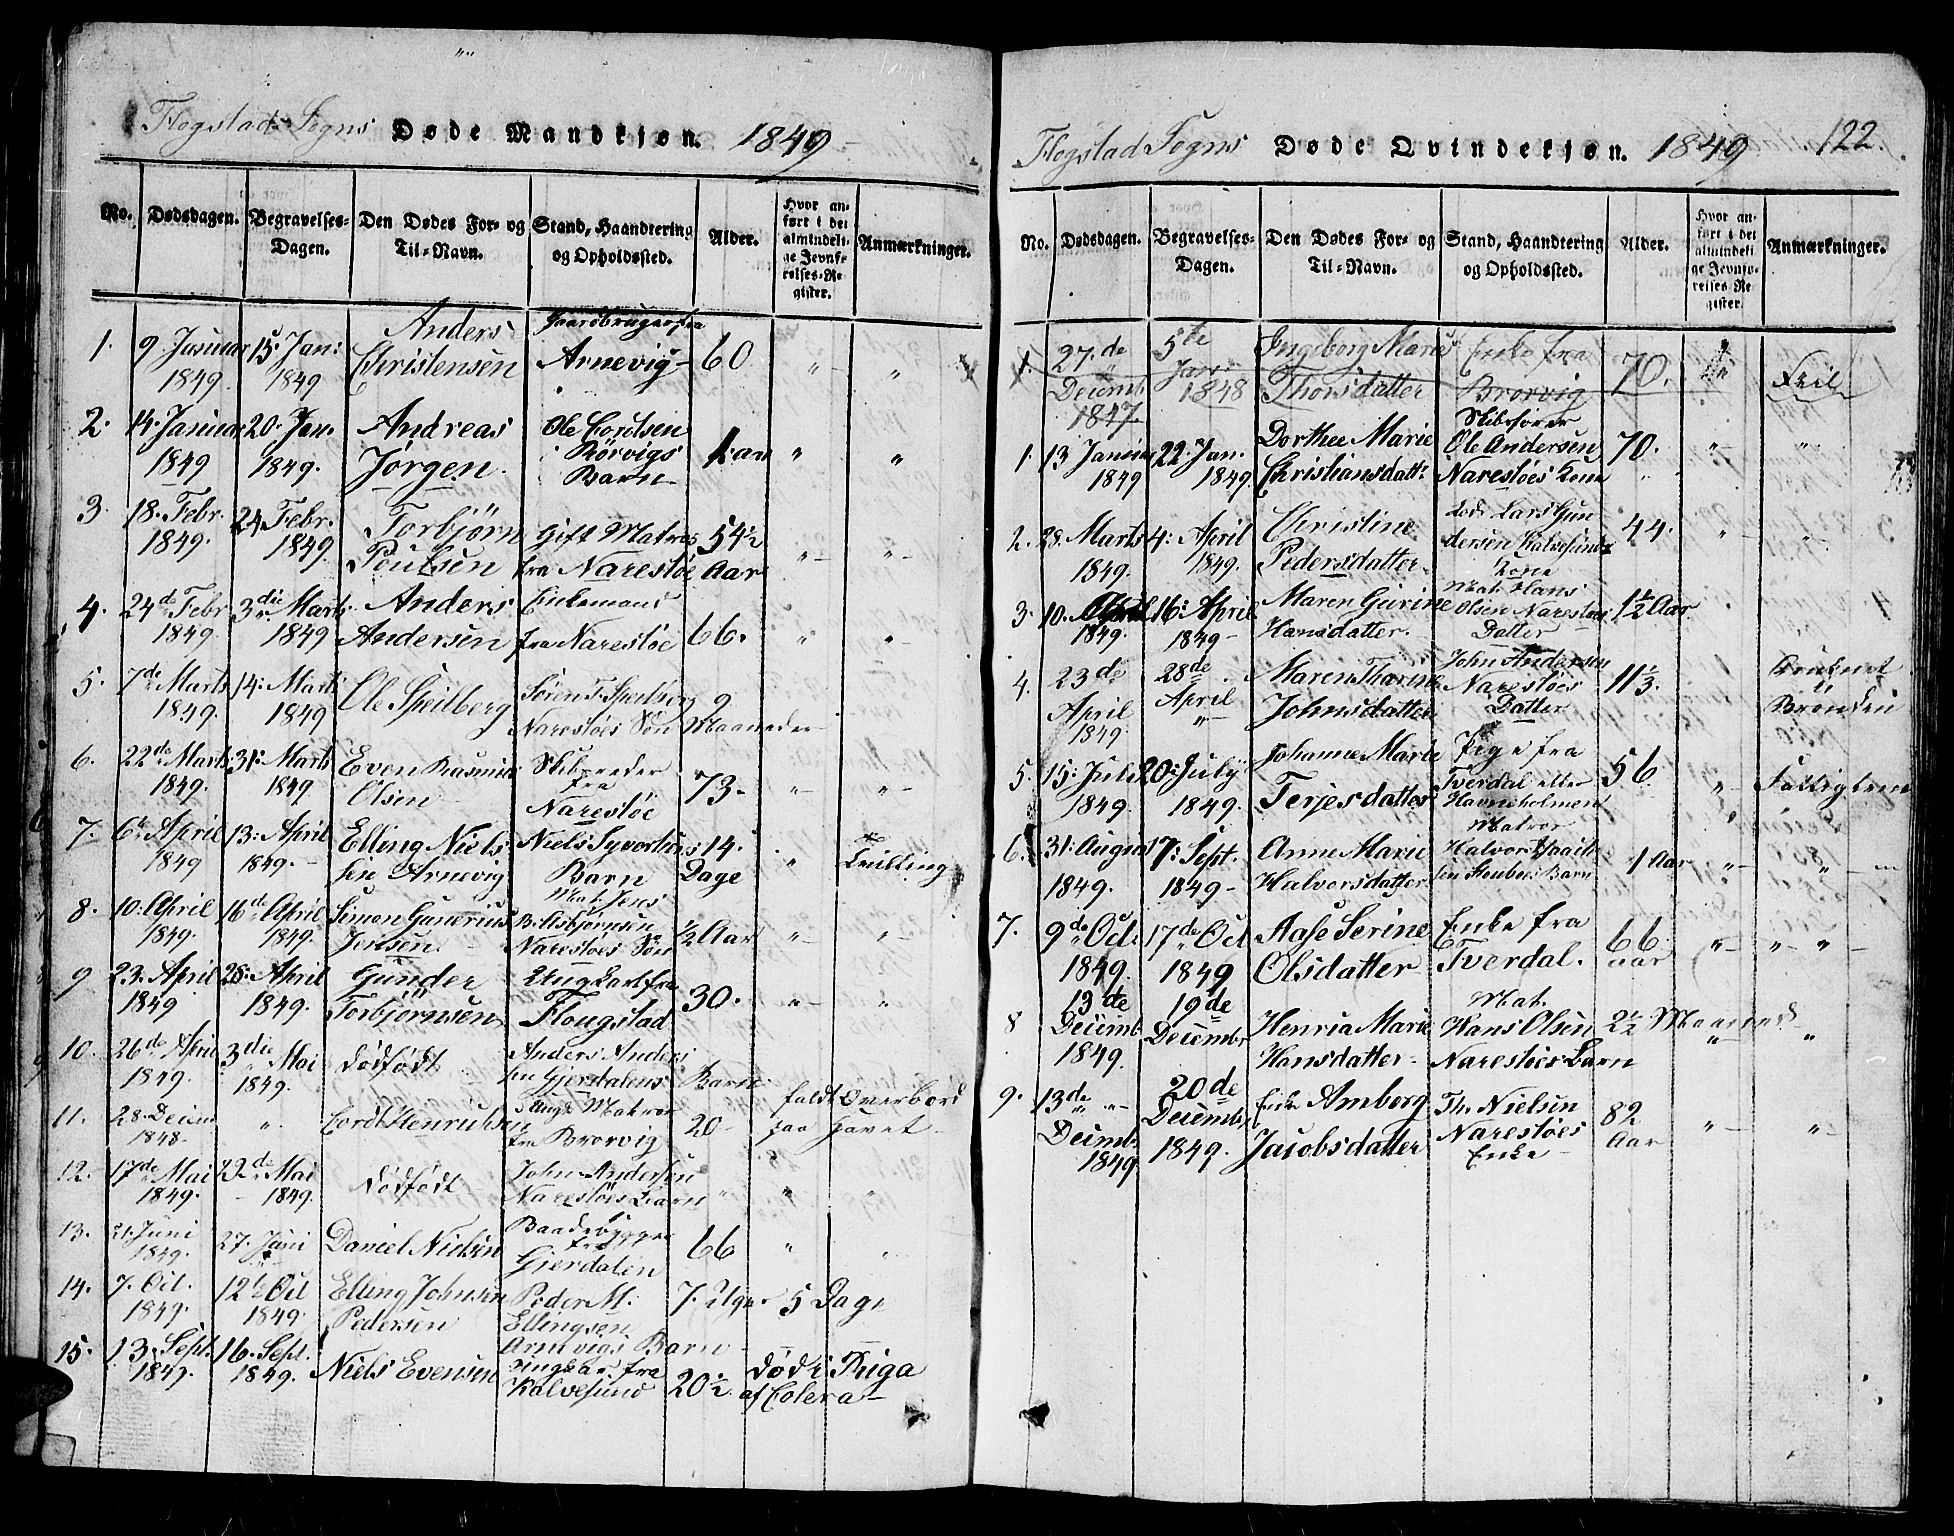 Flogstad Sogns Døde Mandkjøn. 1849
No. Dødsdagen. Begravelses-Dagen. Den Dødes For- og Til-Navn. Stand, Haandtering og Opholdssted. Alder. Hvor anført i det almindelige Jevnførelses-Register. Anmærkninger.
1. 9 Januar 1849. 15: Jan: 1849 Anders Christensen Gaardbruger fra Arnevig 60 " "
2. 14. Januar 1849 20. Jan. 1849. Andreas Jørgen Ole Cordtsen Rörvigs Barn 1. aar " "
3. 18. Febr. 1849. 24 Febr. 1849 Torbjörn Poulsen Gift Matros fra Narestöe 54½ Aar " "
4. 24de Febr 1849. 3die Marts 1849 Anders Andersen Enkemand fra Narestöe 66. " "
5. 7de Marts 1849. 14: Marts 1849 Ole Speilberg Sören T. Speilberg Narestöes Sön 9 Maaneder
6. 22de Marts 1849. 31: Marts 1849 Even Rasmus Olsen Skibsreder fra Narestöe 73. " "
7. 6te April 1849 13: April 1849. Elling Nielssen Arnevig Niels Syvertsens Barn 14. Dage " Tvilling
8. 10: April 1849. 16de April 1849. Simon Gunerius Jensen Mat. Jens B. Asbjörnsen Narestöes Sön ½ Aar " "
9 23. April 1849 28: April 1849. Gunder Torbjörnsen Ung Karl fra Flougstad 30. " "
10. 26de April 1849. 3die Mai 1849. dödfödt Anders Anderssen Gjerdalens Barn
11. 28. Decem 1848. " Cord Henriksen Ungk Matros fra Brorvig 20 faldt Overbord paa Havet
12. 17de Mai 1849. 22de Mai 1849. dödfödt John Andersen Narestöes Barn " " "
13. 21. Juni 1849. 27. Juni Daniel Nielsen Baadebygger fra Gjerdalen 66 " "
14. 7. Oct. 1849. 12te Oct 1849. Elling Johnsen Pedersen Peder M. Ellingsen Arnevigs Barn 7. Uger 5 Dage
15. 13. Sept. 1849. 16. Sept. 1849. Niels Evensen fra Kalvesund 20½ död i Riga af Colera
Flogstad Sogns Døde Qvindekjøn. 1849 122.
No. Dødsdagen. Begravelses-Dagen. Den Dødes For- og Til-Navn. Stand, Haandtering og Opholdssted. Alder. Hvor anført i det almindelige Jevnførelses-Register. Anmærkninger.
1. 27.de Decemb 1847. 5te Jan 1848 Ingeborg Marie Thorsdatter Enke fra Brorvig 70. " Feil
1. 13 Januar 1849 22. Jan. 1849. Dorthee Marie Christiansdatt: Skibsförer Ole Andersen Narestöes Kone 70. " "
2. 28. Marts 1849. 4: April 1849. Christine Pedersdatter Lods Lars Gundersen Kalvesunds Kone 44. " "
3. 10. April 1849. 16: April 1849 Maren Gurine Hansdatter. Mat. Hans Olsen Narestöes Datter 1½ Aar
4. 23de April 1849. 28de April Maren Thorine Johnsdatter John Andersen Narestöes Datter 11⅓. Druknet i Brönden
5. 15: Juli 1849. 20: July 1849. Johanne Marie Terjesdatter Pige fra Tverdal eller Havneholmen 56 " Fattiglem
6. 31: August 1849. 7: Sept. 1849 Anne Marie Halvorsdatter Matros Halvor Barn 1 Aar " "
7. 9de Oct. 1849. 17de Oct 1849 Aase Serine Olsdatter Enke fra Tverdal. 66 aar " " "
8 13de Decemb. 1849. 19de Decembr Henria Marie Hansdatter Mat. Hans Olsen Narestöes Barn 2½ Maaned " "
9. 13de Decemb. 1849 20de Decembr 1849. Enke Amborg Jacobsdatter Th. Nielsen Narestöes Enke 82 Aar " "